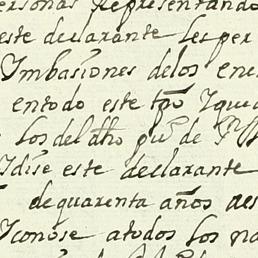 ersonas Representando
este declarante les per
Ymbasiones delos ene
entodo este tpo Yque
los del dho
Ydise este declarante
dequarenta años
Yconose atodos los na